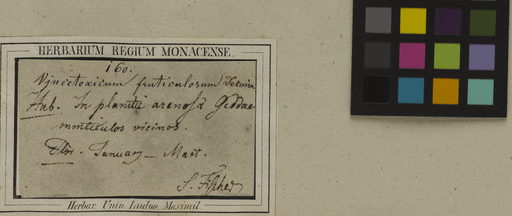 HERBARIUM REGIUM MONACENSE.
160.
Vincetoxicum fruticulosum Decaisn
Hab. In planitie arenosâ Geddae
monticulos vicinos.
Flor. January – Mart.
S. Fischer
Herbar. Univ. Ludov. Maximil.